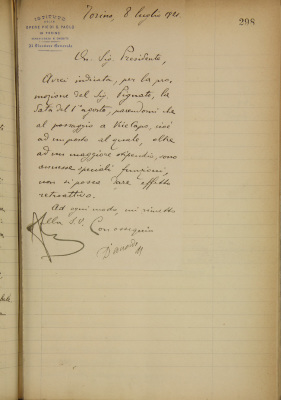 298
ISTITUTO
DELLE
OPERE PIE DI S. PAOLO
IN TORINO
Il Direttore Generale
Torino 8 luglio 1921.
On. Sig. Presidente,
Avrei indicata, per la pro=
mozione del Sig. Pignata, la
data del 1° agosto, parendomi che
al passaggio a Vice Capo, cioè
ad un posto al quale, oltre
ad un maggiore stipendio, sono
annesse speciali funzioni,
non si possa dare effetto
retroattivo.
Ad ogni modo, mi rimetto
alla S.V.